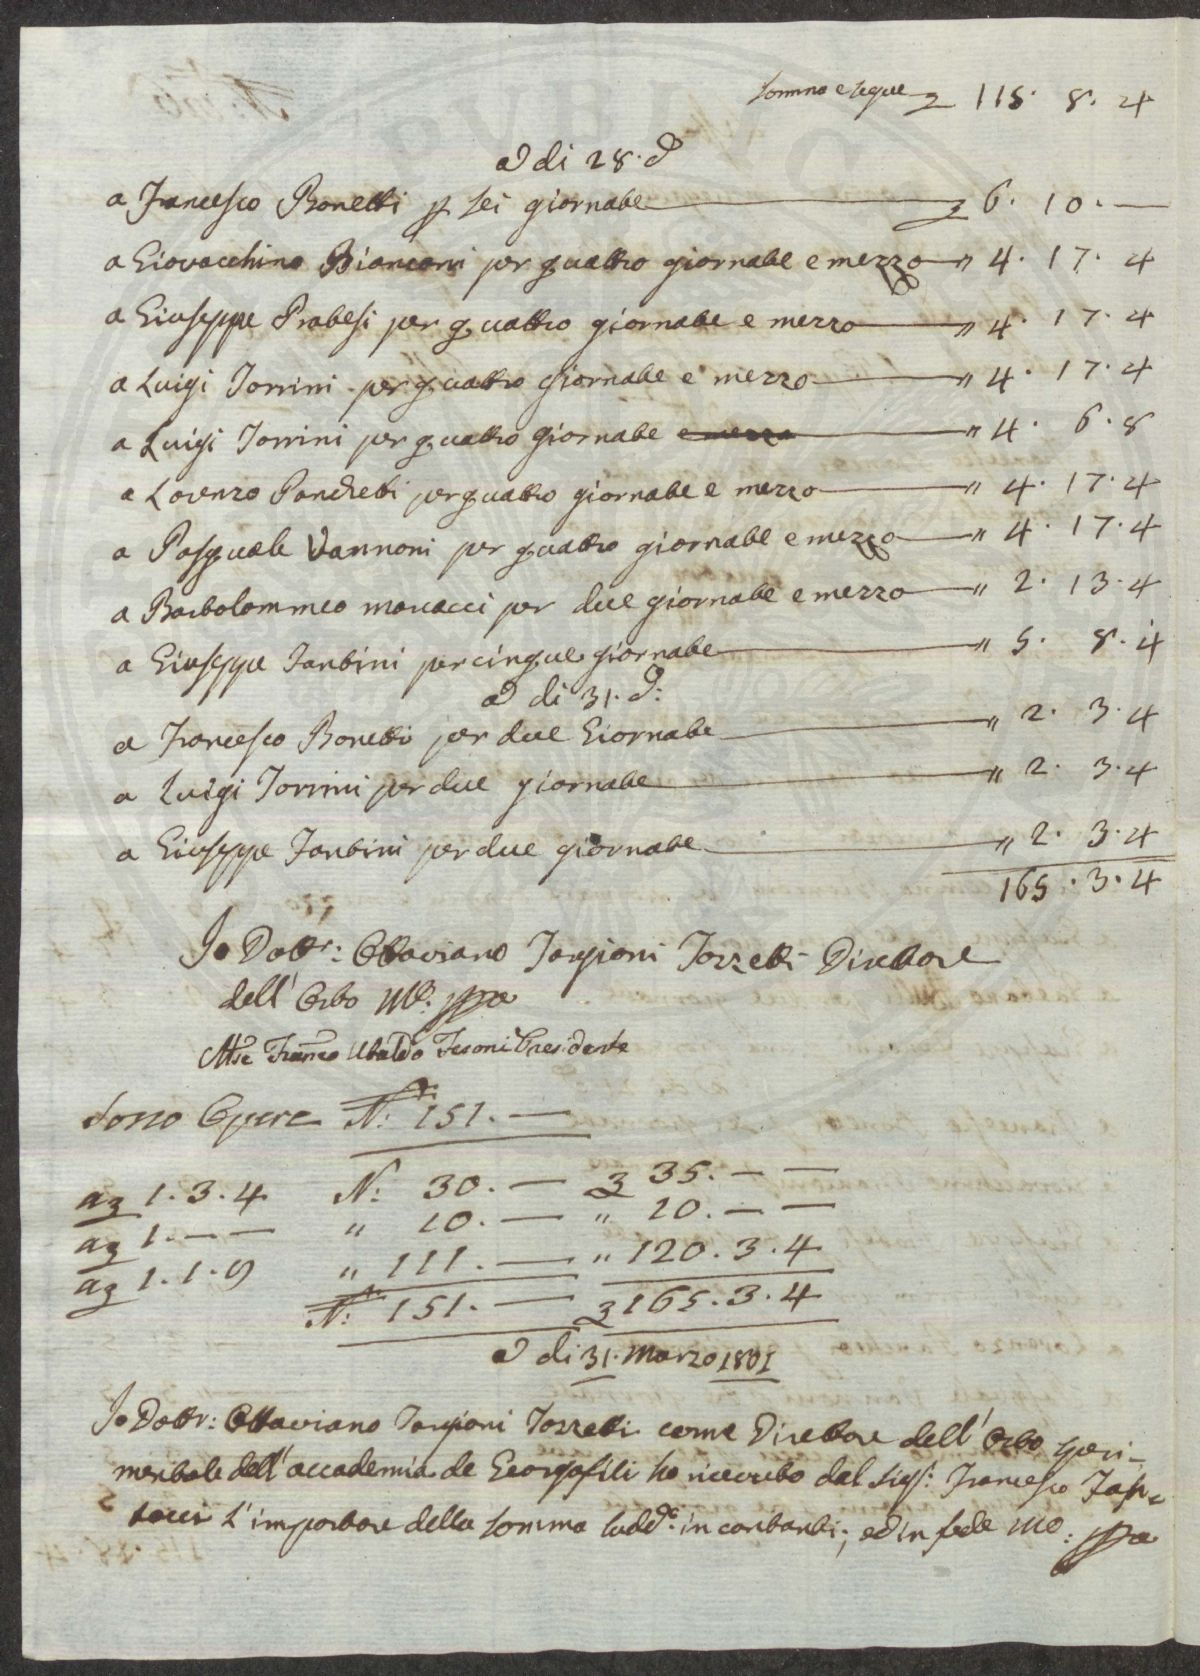 Somma e segue £ 115. 8. 4
A dì 28. d.
a Francesco Bonetti p sei giornate £ 6. 10. —
a Giovacchino Bianconi per quattro giornate e mezzo " 4. 17. 4
a Giuseppe Prabesi per quattro giornate e mezzo " 4. 17. 4
a Luigi Torrini per quattro giornate e mezzo " 4. 17. 4
a Luigi Torrini per quattro giornate e mezzo " 4. 6. 8
a Lorenzo Panchetti per quattro giornate e mezzo " 4. 17. 4
a Pasquale Vannoni per quattro giornate e mezzo " 4. 17. 4
a Bartolommeo per due giornate e mezzo " 2. 13. 4
a Giuseppe Fantini per cinque giornate " 5. 8. 4
A dì 31. d:
a Francesco Bonetti per due Giornate " 2. 3. 4
a Luigi Torrini per due giornate " 2. 3. 4
a Giuseppe Fantini per due giornate " 2. 3. 4
165. 3. 4
Io Dottr: Ottaviano Targioni Tozzetti Direttore
dell' Orto mo: ppa
Franco Ubaldo Presidente
Sono Opere N: 151. —
a £ 1. 3. 4 N: 30. — £ 35. — —
a £ 1. — — " 10. — " 10. — —
a £ 1. 1. 8 " 111. — " 120. 3. 4
N: 151. — £ 165. 3. 4
A dì 31. Marzo 1801
Io Dottr: Ottaviano Targioni Tozzetti come Direttore dell' Orto speri-
mentale dell' accademia de Georgofili ho ricevuto dal Sigr: Francesco
l'importare della somma sudd.a in contanti; ed in fede mo: ppa